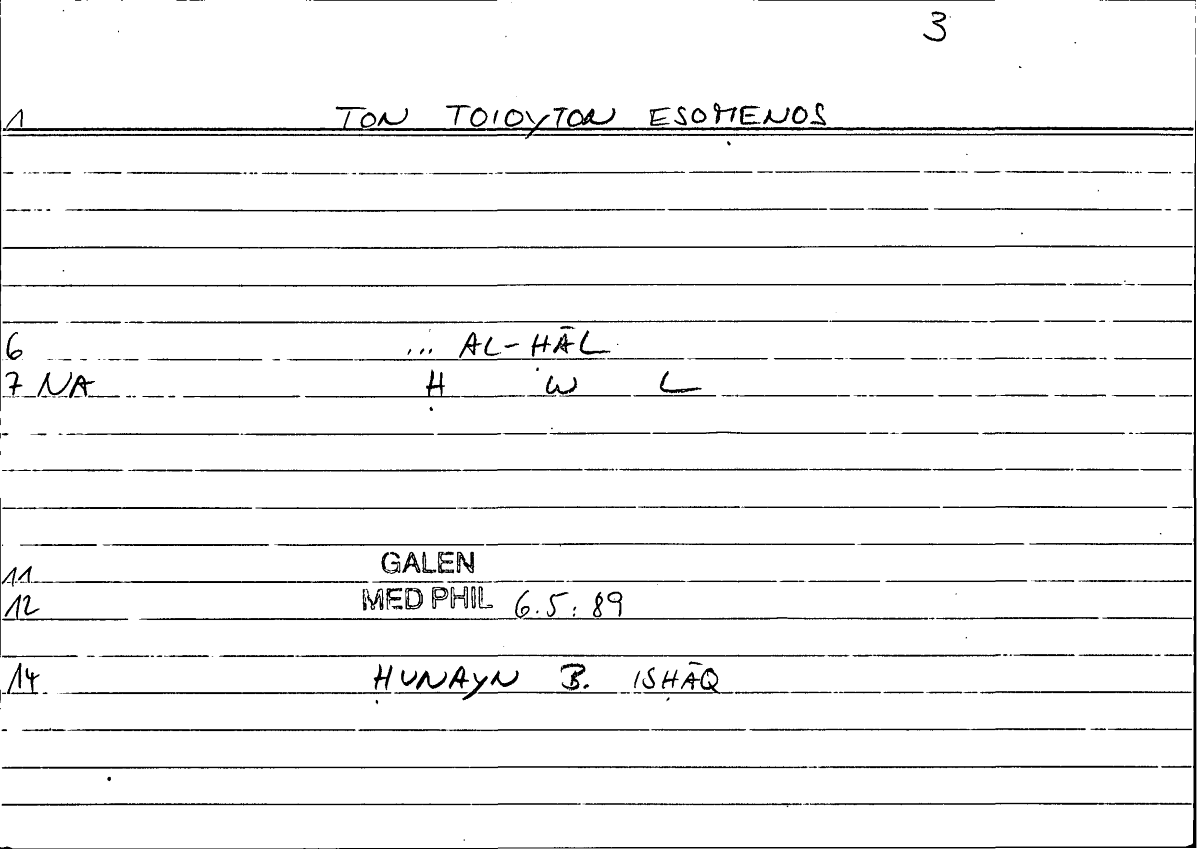 3
1 TON TOIOYTON ESOMENOS
6 ... AL-ḤĀL
7 NA Ḥ W L
11 GALEN
12 MED PHIL 6.5: 89
14 ḤUNAYN B. ISḤĀQ